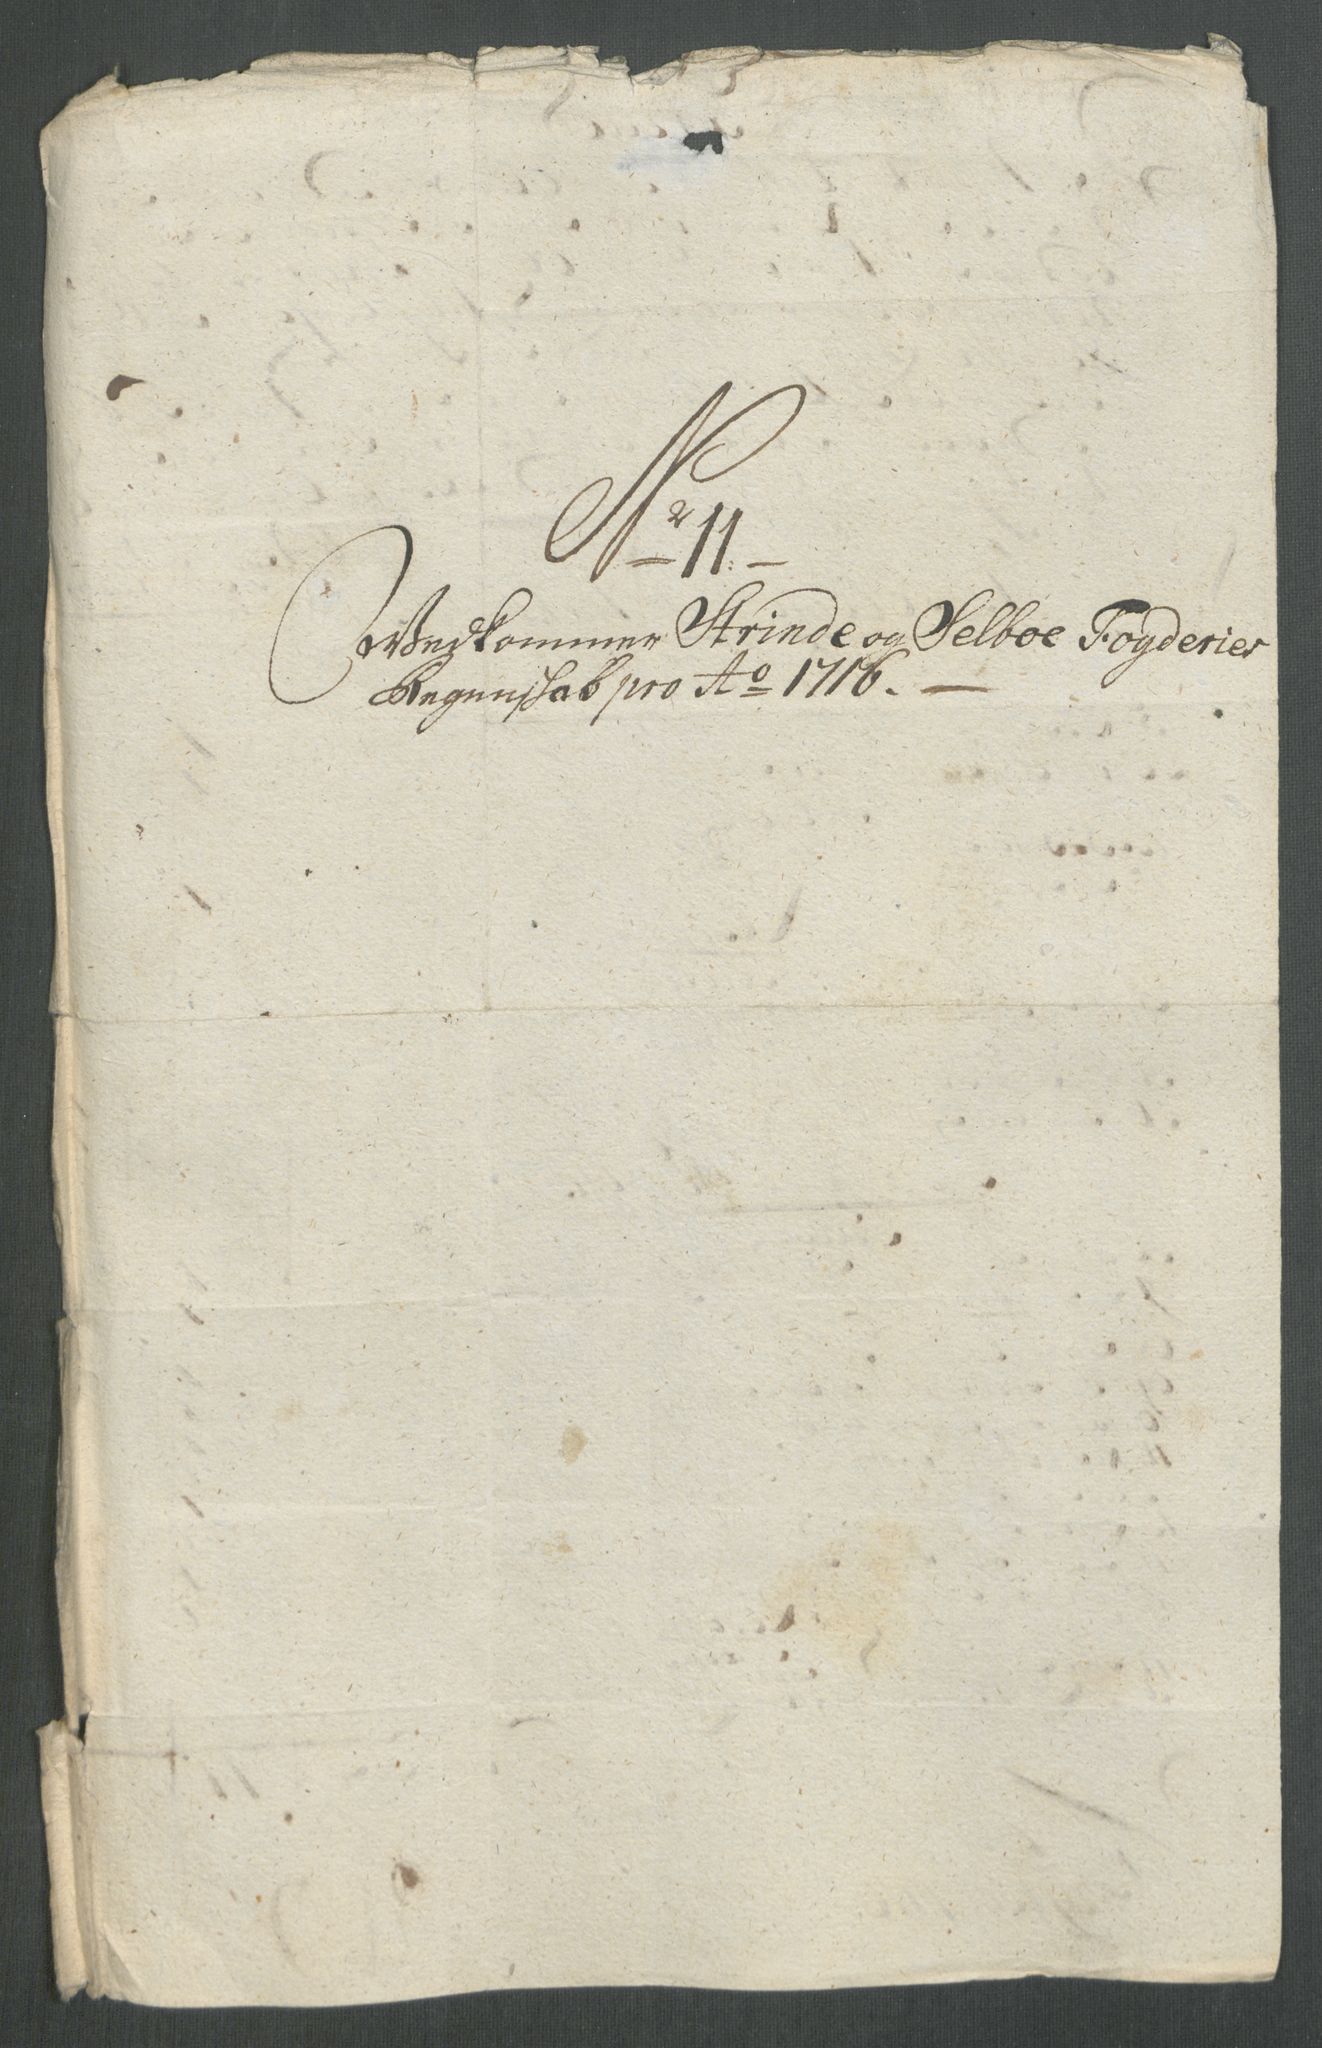 No 11.
Vedkommer Strinde og Selboe Fogderier
Regenschab pro Ao 1716.